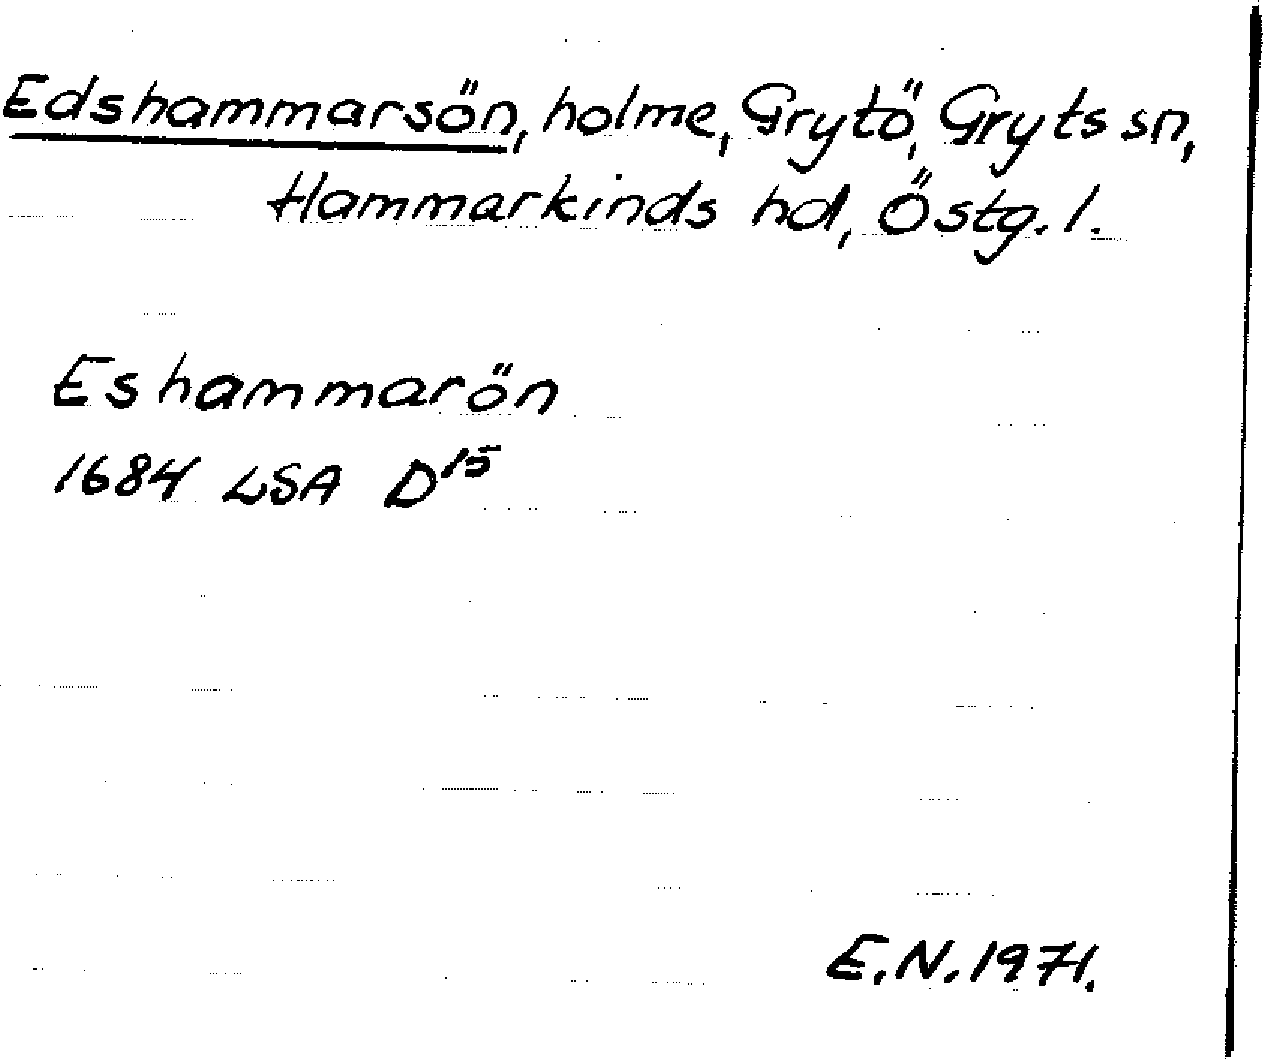 Edshammarsön, holme, Grytö, Gryts sn,
Hammarkinds hd, Östg. l.
Eshammarön
1684 LSA D15
E.N. 1971.